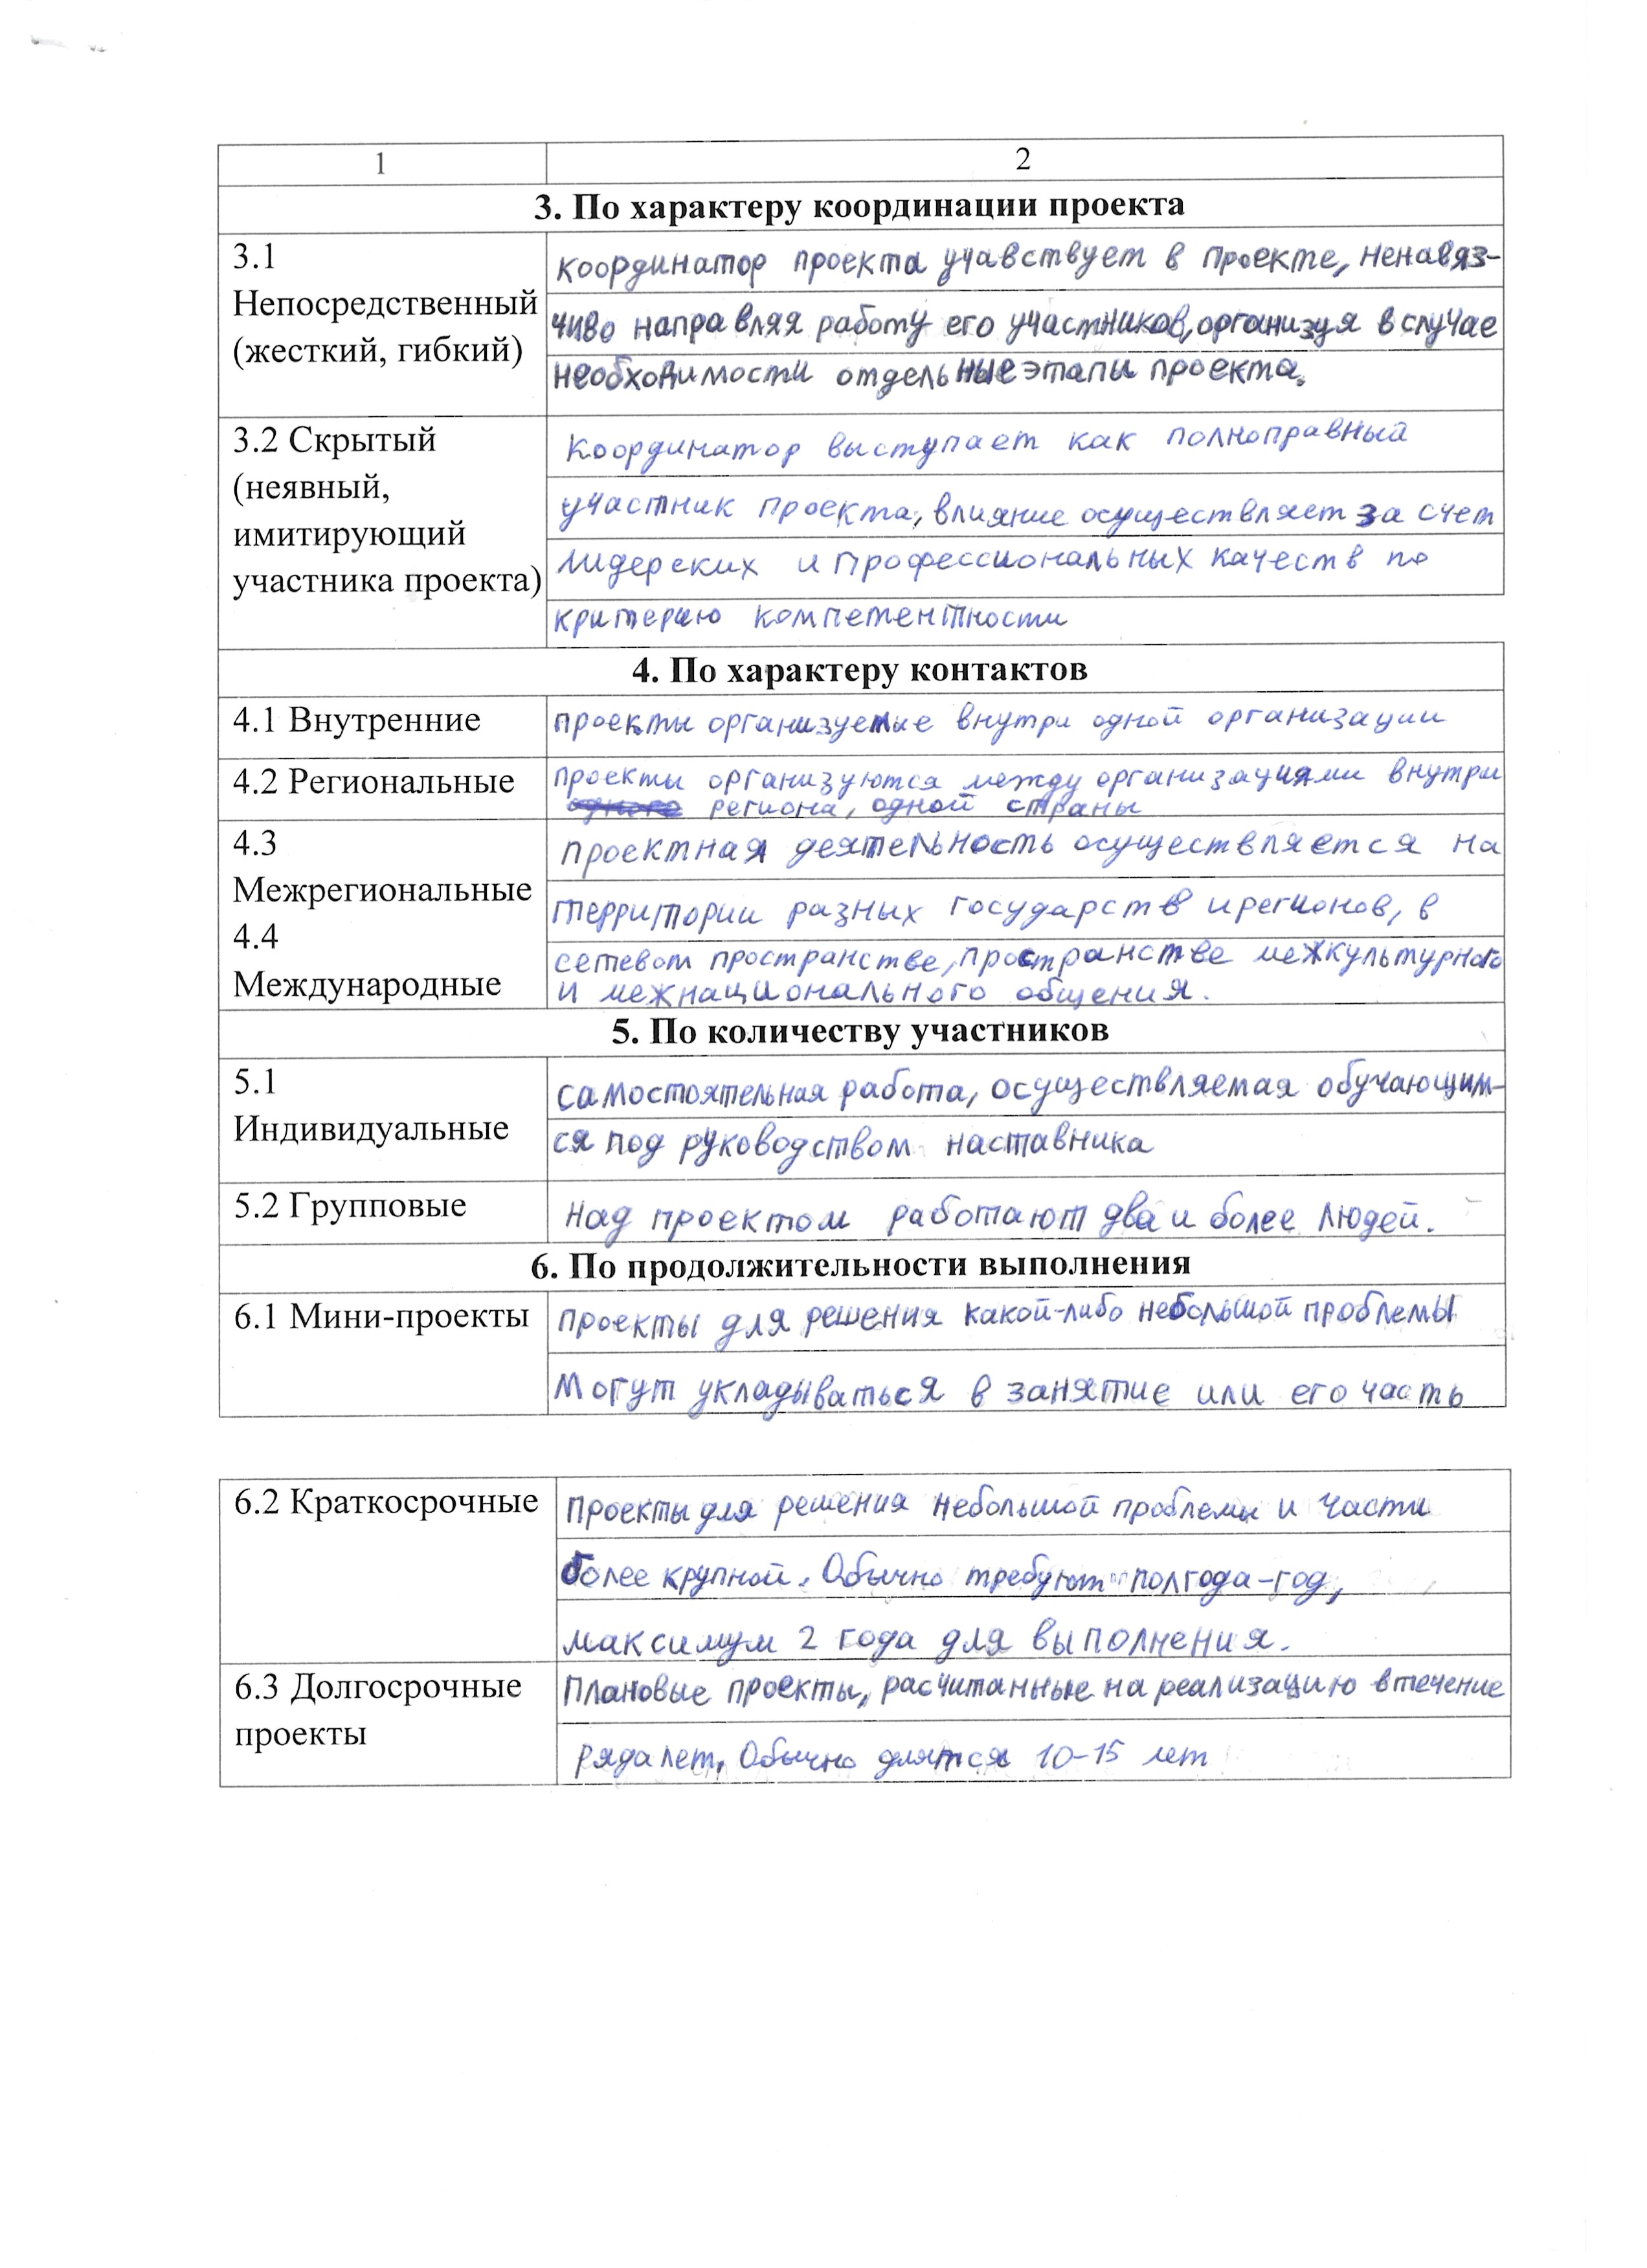 1 2
3. По характеру координации проекта
3.1
Непосредственный
(жесткий, гибкий)
координатор проекта учавствует в проекте, ненавяз-
чиво направляя работу его участников, организуя в случае
необходимости отдельные этапы проекта.
3.2 Скрытый
(неявный,
имитирующий
участника проекта)
Координатор выступает как полноправный
участник проекта, влияние осуществляет за счет
лидерских и профессиональных качеств по
критерию компетентности
4. По характеру контактов
4.1 Внутренние
проекты организуемые внутри одной организации
4.2 Региональные
проекты организуются между организациями внутри
региона, одной страны
4.3
Межрегиональные
4.4
Международные
Проектная деятельность осуществляется на
территории разных государств и регионов, в
сетевом пространстве, пространстве межкультурного
и межнационального общения.
5. По количеству участников
5.1
Индивидуальные
самостоятельная работа, осуществляемая обучающим-
ся под руководством наставника
5.2 Групповые
Над проектом работают два и более людей.
6. По продолжительности выполнения
6.1 Мини-проекты
проекты для решения какой-либо небольшой проблемы
Могут укладываться в занятие или его часть
6.2 Краткосрочные
Проекты для решения небольшой проблемы и части
более крупной. Обычно требуют полгода-год,
максимум 2 года для выполнения.
6.3 Долгосрочные
проекты
Плановые проекты, расчитанные на реализацию в течение
ряда лет. Обычно длятся 10-15 лет